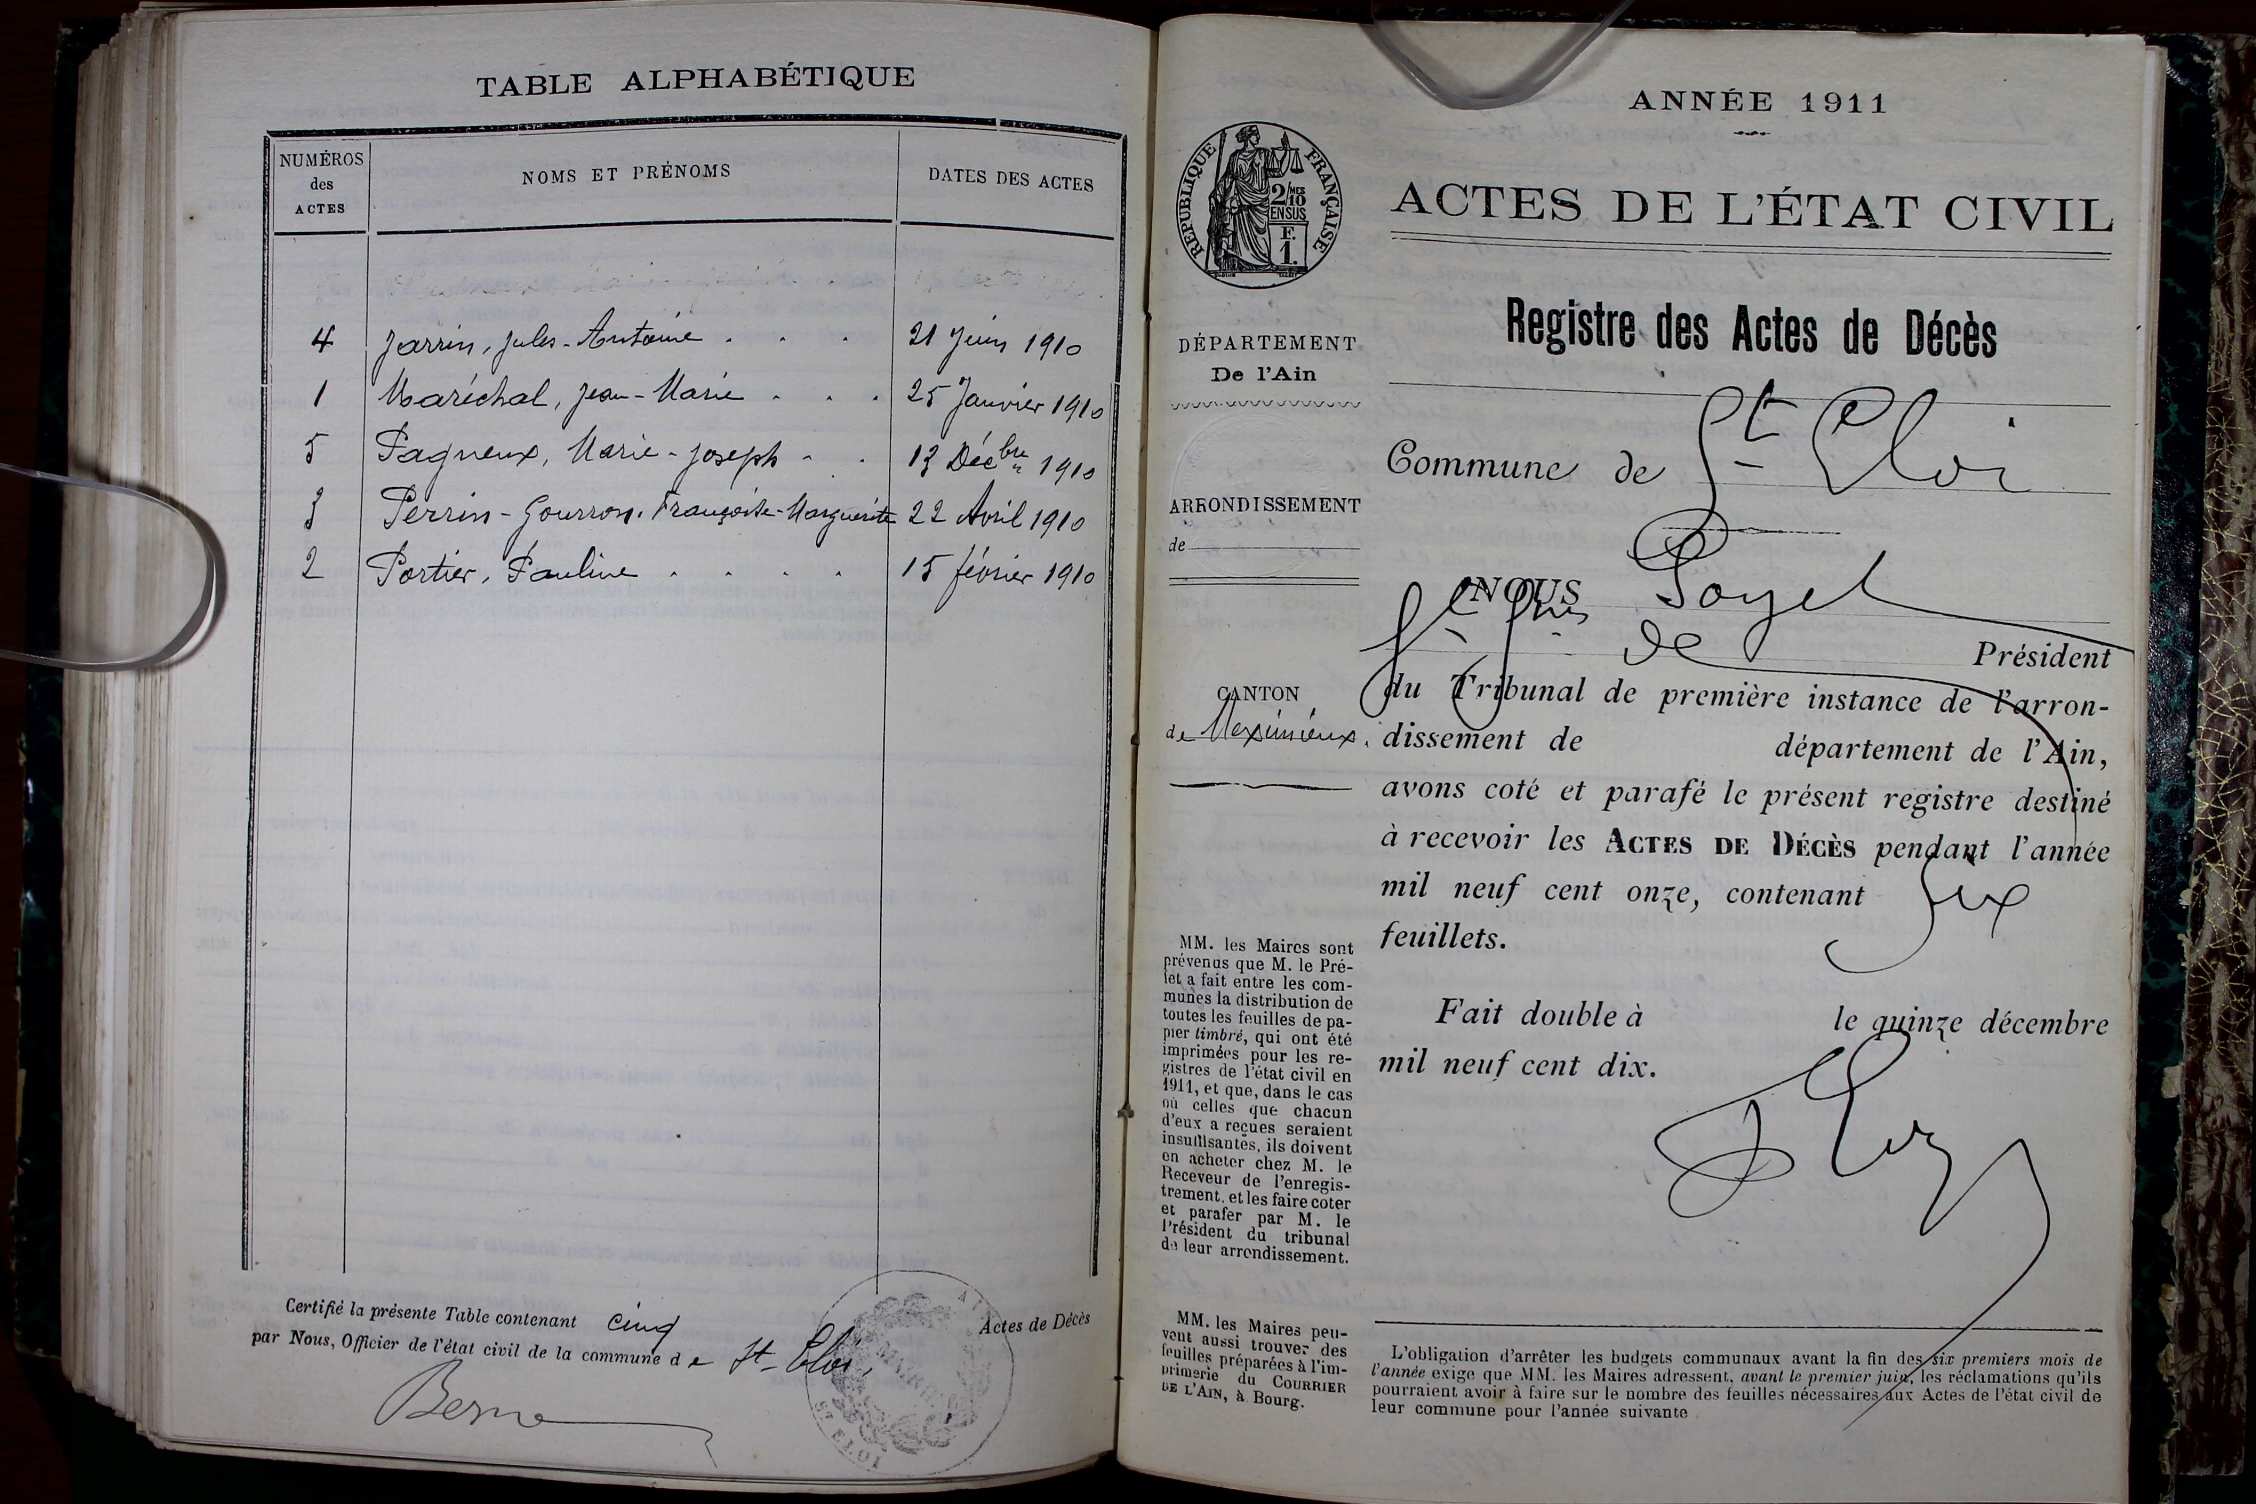 TABLE ALPHABÉTIQUE
NUMÉROS
des
ACTES
NOMS ET PRÉNOMS
DATES DES ACTES
4 Jarrin, Jules-Antoine . . . 21 Juin 1910
1 Maréchal, Jean-Marie . . . 25 Janvier 1910
5 Pagneux, Marie-Joseph - . 13 Décbre 1910
3 Perrin-Gourron, Françoise-Marguerite 22 Avril 1910
2 Portier, Pauline . . . . 15 février 1910
Certifié la présente Table contenant cinq Actes de Décès
par Nous, Officier de l'état civil de la commune de St-Eloi,
Berne
MAIRIE
ST ELOI
AIN
ANNÉE 1911
RÉPUBLIQUE FRANÇAISE
2/10 MES
EN SUS
F.
1.
ACTES DE L'ÉTAT CIVIL
Registre des Actes de Décès
DÉPARTEMENT
De l'Ain
ARRONDISSEMENT
de
CANTON
de Meximieux.
Commune de St Eloi
NOUS
de
Président
du Tribunal de première instance de l'arron-
dissement de département de l'Ain,
avons coté et parafé le présent registre destiné
à recevoir les ACTES DE DÉCÈS pendant l'année
mil neuf cent onze, contenant Six
feuillets.
Fait double à le quinze décembre
mil neuf cent dix.
MM. les Maires sont
prévenus que M. le Pré-
fet a fait entre les com-
munes la distribution de
toutes les feuilles de pa-
pier timbré, qui ont été
imprimées pour les re-
gistres de l'état civil en
1911, et que, dans le cas
où celles que chacun
d'eux a reçues seraient
insuffisantes, ils doivent
en acheter chez M. le
Receveur de l'enregis-
trement, et les faire coter
et parafer par M. le
Président du tribunal
de leur arrondissement.
MM. les Maires peu-
vent aussi trouver des
feuilles préparées à l'im-
primerie du COURRIER
DE L'AIN, à Bourg.
L'obligation d'arrêter les budgets communaux avant la fin des six premiers mois de
l'année exige que MM. les Maires adressent, avant le premier juin, les réclamations qu'ils
pourraient avoir à faire sur le nombre des feuilles nécessaires aux Actes de l'état civil de
leur commune pour l'année suivante.